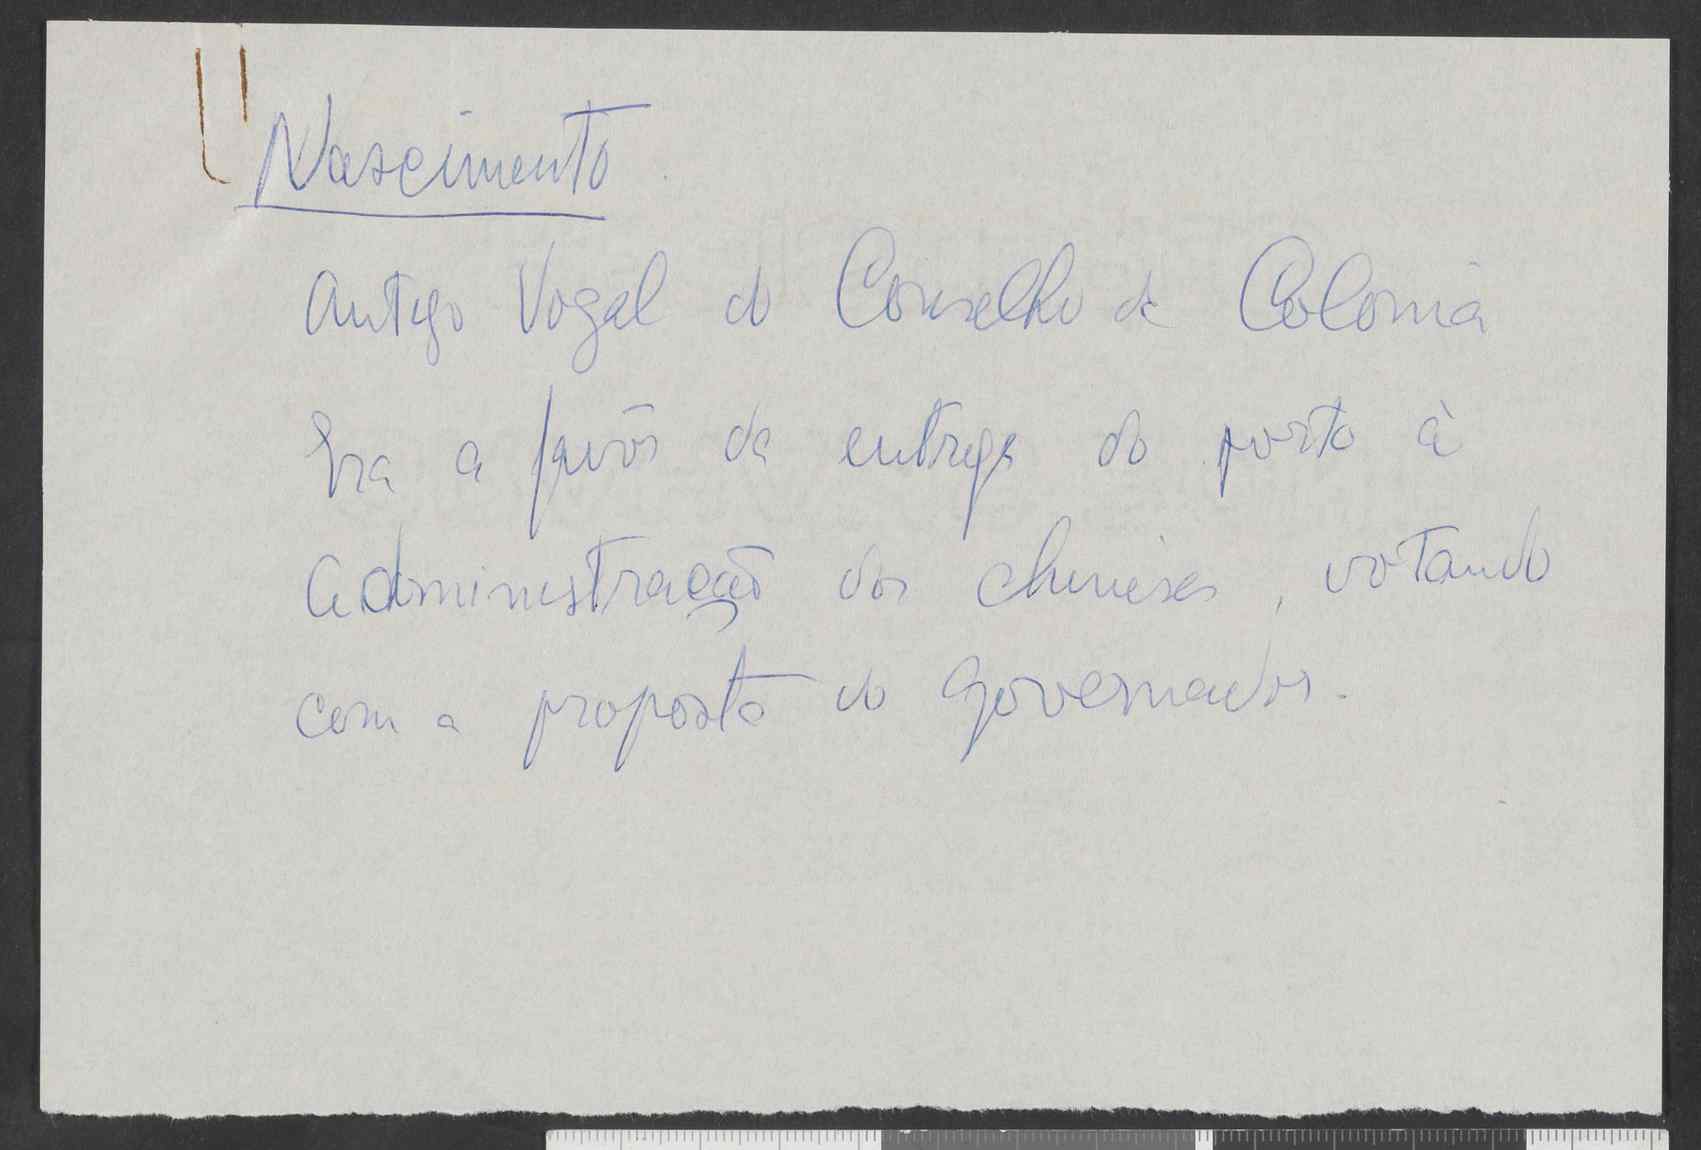 Nascimento
Antigo Vogal do Conselho da Colonia
Era a favôr da entrega do porto à
administração dos chineses, votando
com a proposta do Governador.